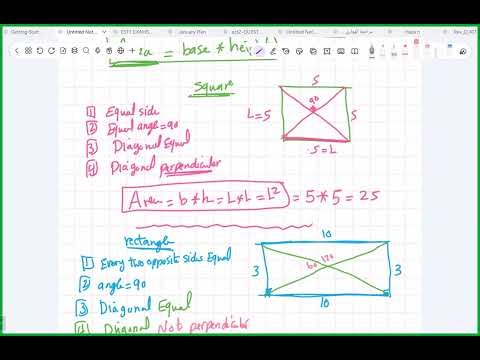 Getting Start
Untitled Not
January Plan
Untitled Not
= base * heig
Square
1 Equal side
2 Equal angle=90
3 Diagonal Equal
4 Diagonal perpendicular
5
90
L=5
5
5=L
Area = b*h = L*L = L² = 5*5 = 25
rectangle
1 Every two opposite sides Equal
2 angle=90
3 Diagonal Equal
4 Diagonal Not perpendicular
10
3
60
120
3
10